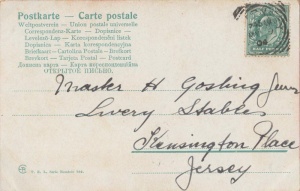 Postkarte - Carte postale
Weltpostverein - Union postale universelle
Correspondenz-Karte - Dopisnice -
Levelező-Lap - Korespondenční lístek
Dopisnica - Karta korespondencyjna
Briefkaart - Cartolina Postale - Brefkort
Brevkort - Tarjeta Postal - Postcard
ОТКРЫТОЕ ПИСЬМО.
Master H Gosling Junr
Livery Stables
Kensington Place
Jersey